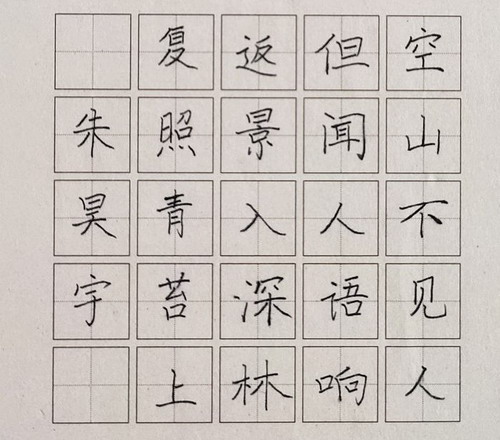 空山不见人
但闻人语响
返景入深林
复照青苔上
朱昊宇